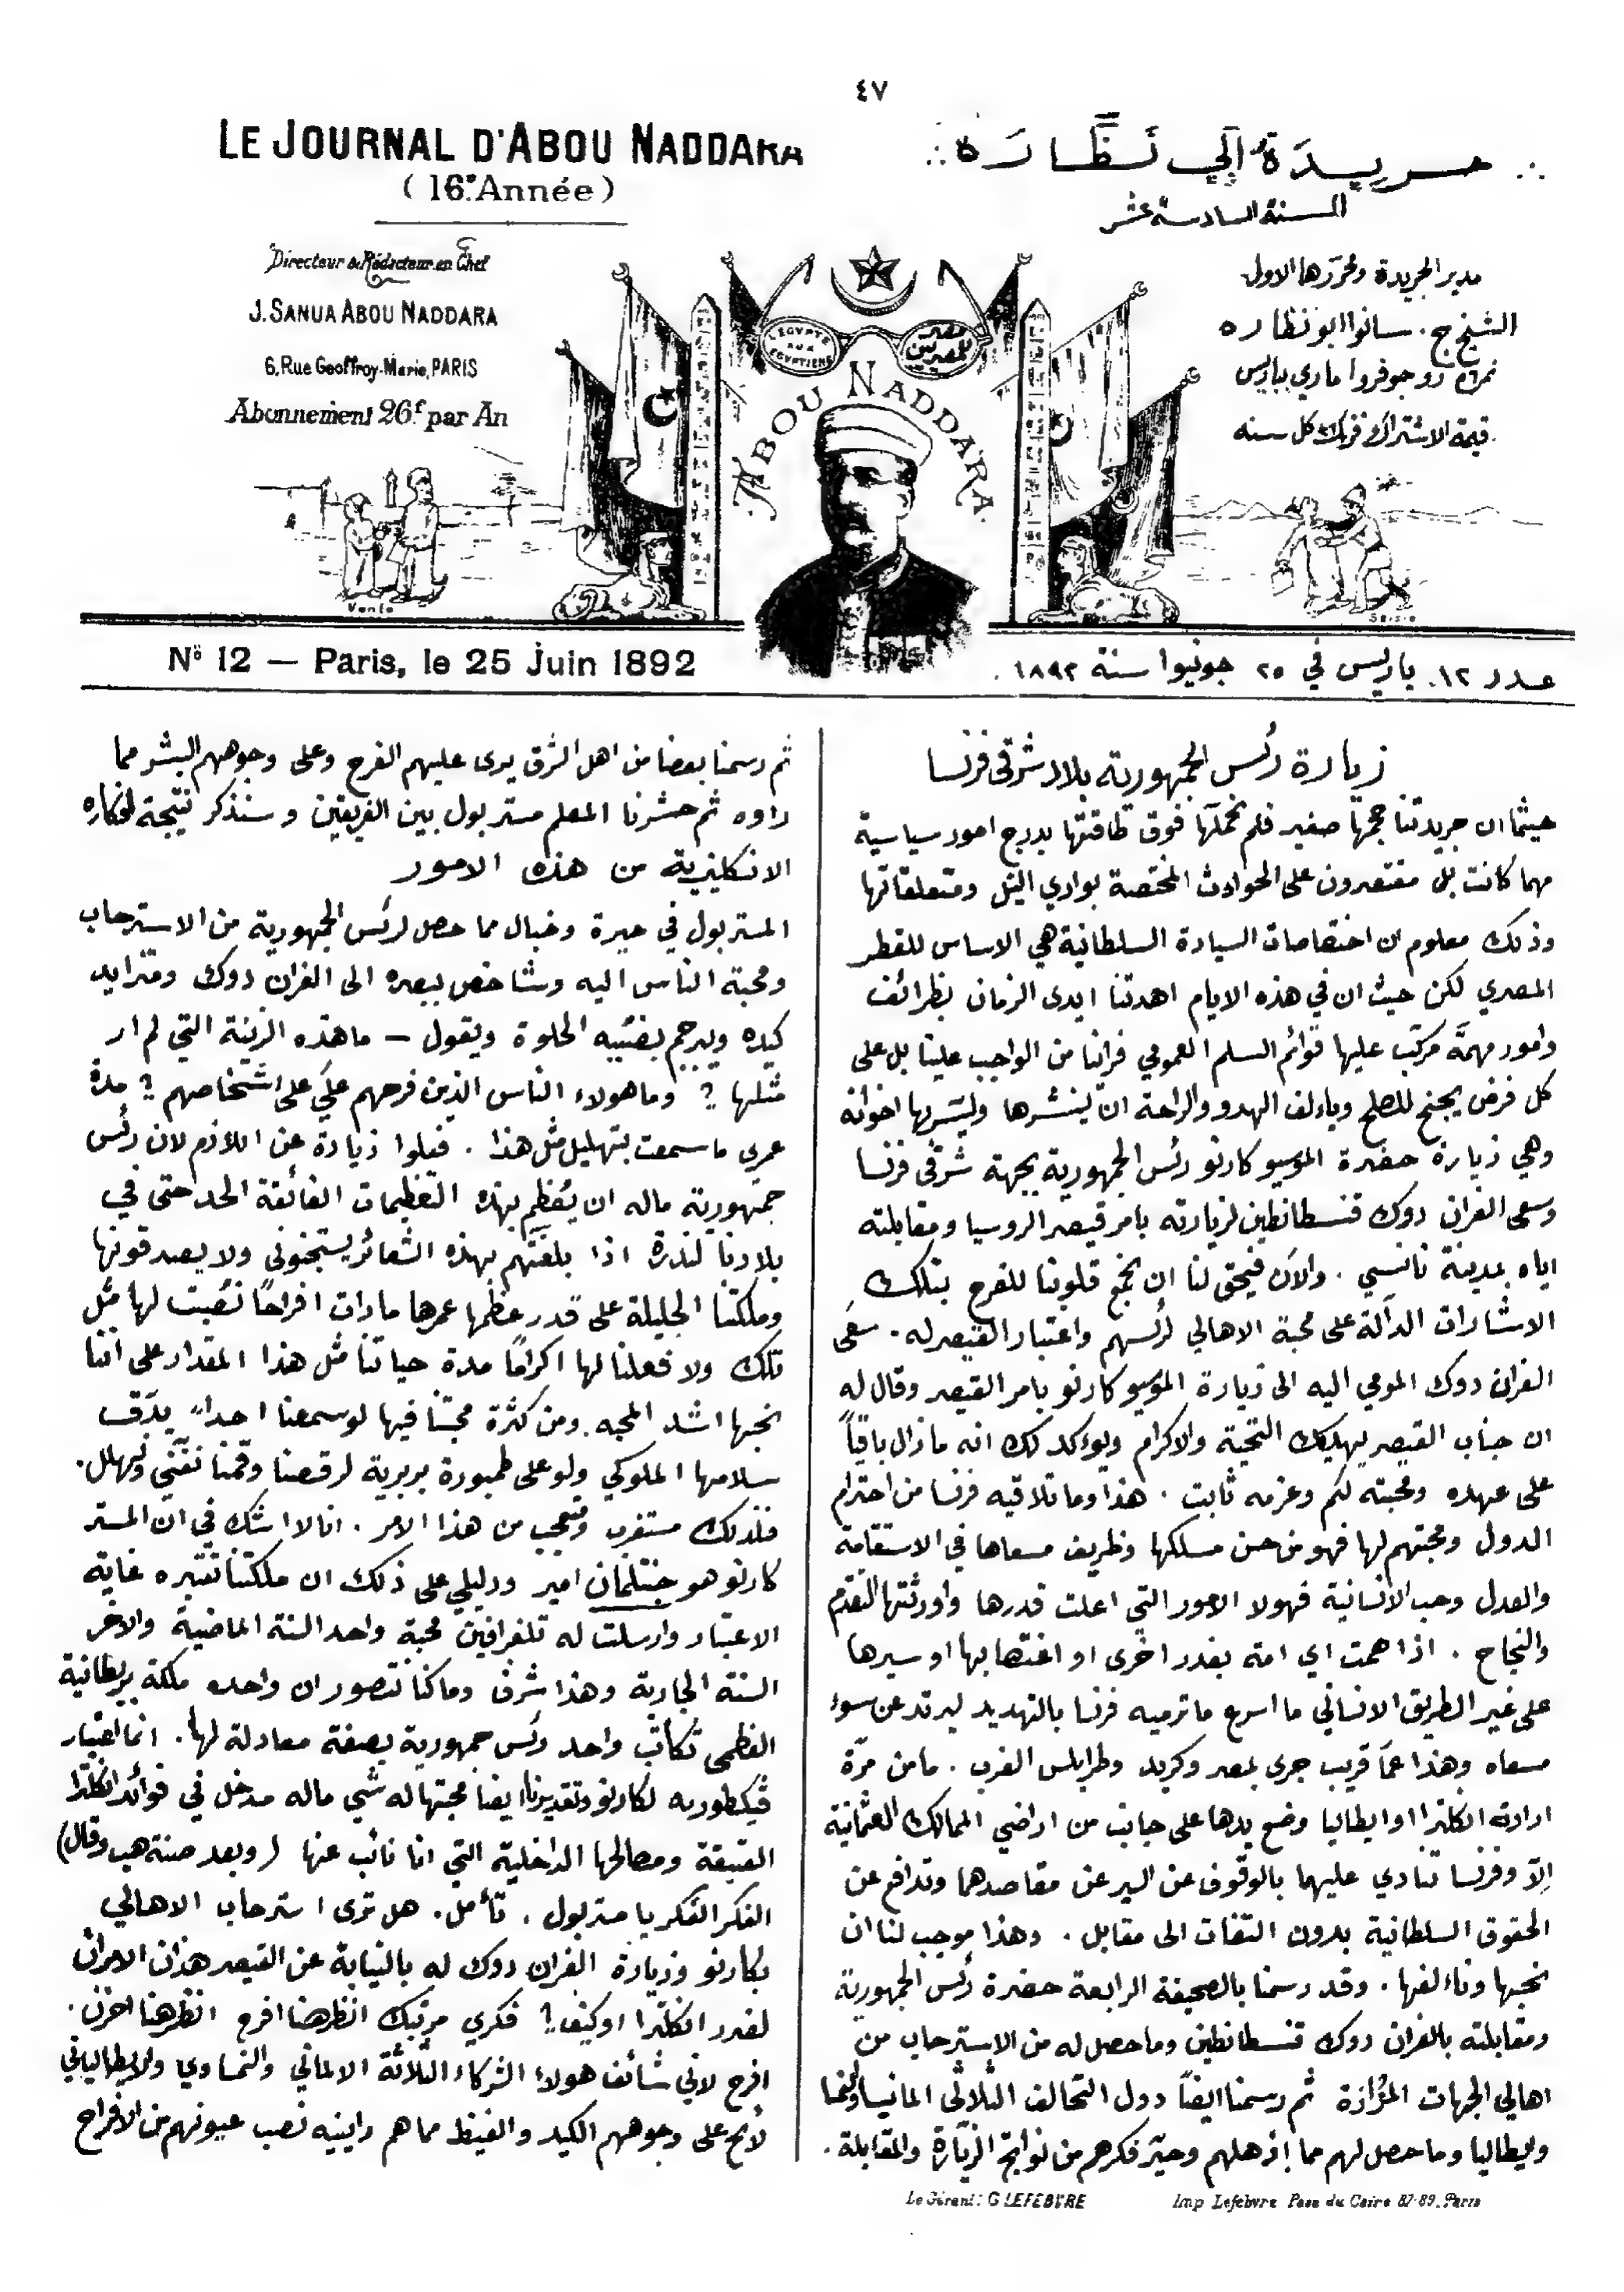 ٤٧
LE JOURNAL D'ABOU NADDARA
(16e Année)
Directeur & Rédacteur en Chef
J. SANUA ABOU NADDARA
6, Rue Geoffroy-Marie, PARIS
Abonnement 26f par An
جريدة ابي نظارة
السنة السادسة عشر
مدير الجريدة ومحررها الاول
الشيخ ج. سانوا ابو نظاره
نمرة رو جوفروا ماري بباريس
قيمة الاشتراك فرنك كل سنه
EGYPTE AUX EGYPTIENS
مصر للمصريين
ABOU NADDARA
Vente
Saisie
No 12 — Paris, le 25 Juin 1892
عدد ١٢. باريس في ٢٥ جونيوا سنة ١٨٩٢.
زيارة رئس الجمهورية بلاد شرقي فرنسا
حيثما ان جريدتنا حجمها صغير فلم نحملها فوق طاقتها بدرج امور سياسية
مهما كانت بل مقتصرون على الحوادث المختصة بوادي النيل ومتعلقاتها
وذلك معلوم ان اختصاصات السيادة السلطانية هي الاساس للقطر
المصري لكن حيث ان في هذه الايام اهدتنا ايدى الزمان بظرائف
وامور مهمة مركب عليها قوائم السلم العمومي فراينا من الواجب علينا بل على
كل فرض يجنح للصلح ويادلف الهدو والراحة ان ينشرها وليسر بها اخوانه
وهي زيارة حضرة الموسيو كارنو رئس الجمهورية بجهة شرقي فرنسا
وسعى الغران دوك قنسطانطين لزيارته بامر قيصر الروسيا ومقابلته
اياه بمدينة نانسي. والان فيحق لنا ان نجمع قلوبنا للفرح بتلك
الاشارات الدالة على محبة الاهالي لرئسهم واعتبار القيصر له. سعى
الغران دوك المومي اليه الى زيارة الموسيو كارنو بامر القيصر وقال له
ان جناب القيصر يهديك التحية والاكرام ويوكد لك انه مازال باقياً
على عهده ومحبته لكم وعزمه ثابت. هذا وما تلاقيه فرنسا من احترام
الدول ومحبتهم لها فهو من حسن مسلكها وظريف مسعاها في الاستقامة
والعدل وحب الانسانية فهولا الامور التي اعلت قدرها واورثتها التقدم
والنجاح. اذا همت اي امة بغدر اخرى او اغتصابها او سيرها
على غير الطريق الانساني ما اسرع ما ترميه فرنسا بالتهديد ليرتد عن سوء
مسعاه وهذا عما قريب جرى بمصر وكريد وطرابلس الغرب. ما من مرة
ارادة انكلترا او ايطاليا وضع يدها على جانب من اراضي الممالك العثمانية
الا وفرنسا تنادي عليهما بالوقوف عن السير عن مقاصدهما وتدافع عن
الحقوق السلطانية بدون التفات الى مقابل. وهذا موجب لنا ان
نحبها وناءلفها. وقد رسمنا بالصحيفة الرابعة حضرة رئس الجمهورية
ومقابلته بالغران دوك قنسطانطين وما حصل له من الاسترحاب من
اهالي الجهات المزارة ثم رسمنا ايضاً دول التحالف الثلاثى المانيا والنمسا
وايطاليا وما حصل لهم مما اذهلهم وحير فكرهم من نوابج الزيارة والمقابلة.
ثم رسمنا بعضا من اهل الشرق يرى عليهم الفرح وعلى وجوههم البشر مما
راوه ثم حشرنا المعلم مستر بول بين الفريقين وسنذكر نتيجة افكاره
الانكليزية من هذه الامور
المستر بول في حيرة وخبال مما حصل لرئس الجمهورية من الاسترحاب
ومحبة الناس اليه وشاخص ببصره الى الغران دوك ومتزايد
كيده ويبرجم بغنيه الحلوة ويقول — ما هذه الزينة التي لم ار
مثلها؟ وما هولاء الناس الذين فرحهم على اشخاصهم؟ مدة
عمري ما سمعت بتهليل مثل هذا. فعلوا زيادة عن اللازم لان رئس
جمهورية ماله ان يعظم بهذه التعظيمات الفائقة الحد حتى في
بلادنا لندرة اذا بلغتهم بهذه الشعائر يستجنوني ولا يصدقونها
وملكتنا الجليلة على قدر عظمها عمرها مارات افراحاً نصبت لها مثل
تلك ولا فعلنا لها اكراماً مدة حياتنا مثل هذا المقدار على اننا
نحبها اشد المحبه. ومن كثرة محبتنا فيها لو سمعنا احداً يدق
سلامها الملوكي ولو على طمبورة بربرية لرقصنا وقمنا نغني ونهلل.
فلذلك مستغرب ومتعجب من هذا الامر. انا لا اشك في ان المستر
كارنو هو جنتلمان امير ودليلي على ذلك ان ملكتنا تعتبره غاية
الاعتبار وارسلت له تلغرافين محبة واحد السنة الماضية والاخر
السنة الجارية وهذا شرف وما كنا نتصور ان واحده ملكة بريطانية
العظمى تكاتب واحد رئس جمهورية بصفة معادلة لها. انما اعتبار
فيكطوريه لكارنو وتقديرنا ايضا محبتها له شي ماله مدخل في فوائد انكلترا
العتيقة ومصالحها الداخلية التي انا نائب عنها (وبعد صنة هيب وقال)
الفكر الفكر يا مستر بول. تأمل. هل ترى استرحاب الاهالي
بكارنو وزيارة الغران دوك له بالنيابة عن القيصر هذان الامران
لضرر انكلترا او كيف؟ فكري مرتبك انظر هنا افرح انظر هنا احزن.
افرح لاني شائف هولاء الشركاء الثلاثة الالماني والنمساوي والايطالياني
لائح على وجوههم الكيد والغيظ مما هم راينيه نصب عيونهم من الافراح
Le Gérant: G LEFEBVRE
Imp Lefebvre Pass du Caire 87-89, Paris